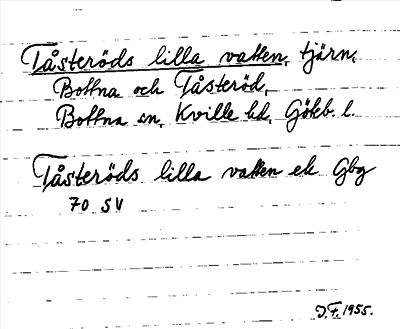 Tåsteröds lilla vatten, tjärn,
Bottna och Tåsteröd,
Bottna sn, Kville hd, Göteb. l.
Tåsteröds lilla vatten ek Gbg
70 SV
J.F. 1955.